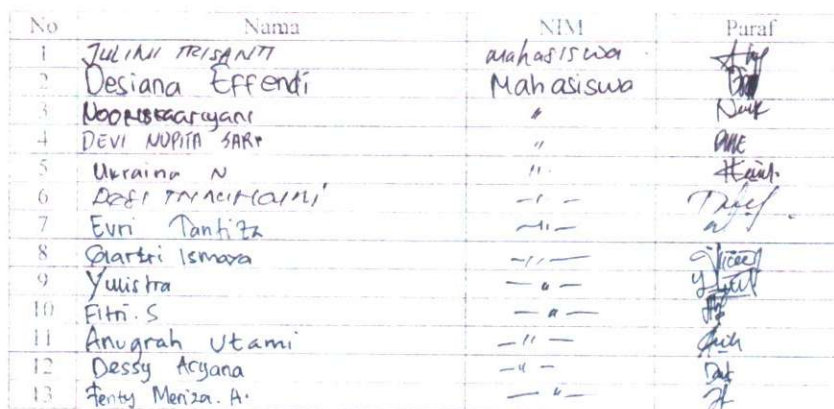 No Nama NIM Paraf
1 JULINI TRISANTI mahasiswa
2 Desiana Effendi Mahasiswa
3 "
4 DEVI NUPITA SARI "
5 Ukraina N "
6 — " —
7 Evri Tantizz — " —
8 Ismaya — " —
9 Yulistra — " —
10 Fitri. S — " —
11 Anugrah Utami — " —
12 Dessy Aryana — " —
13 Fenty Meriza. A. — " —